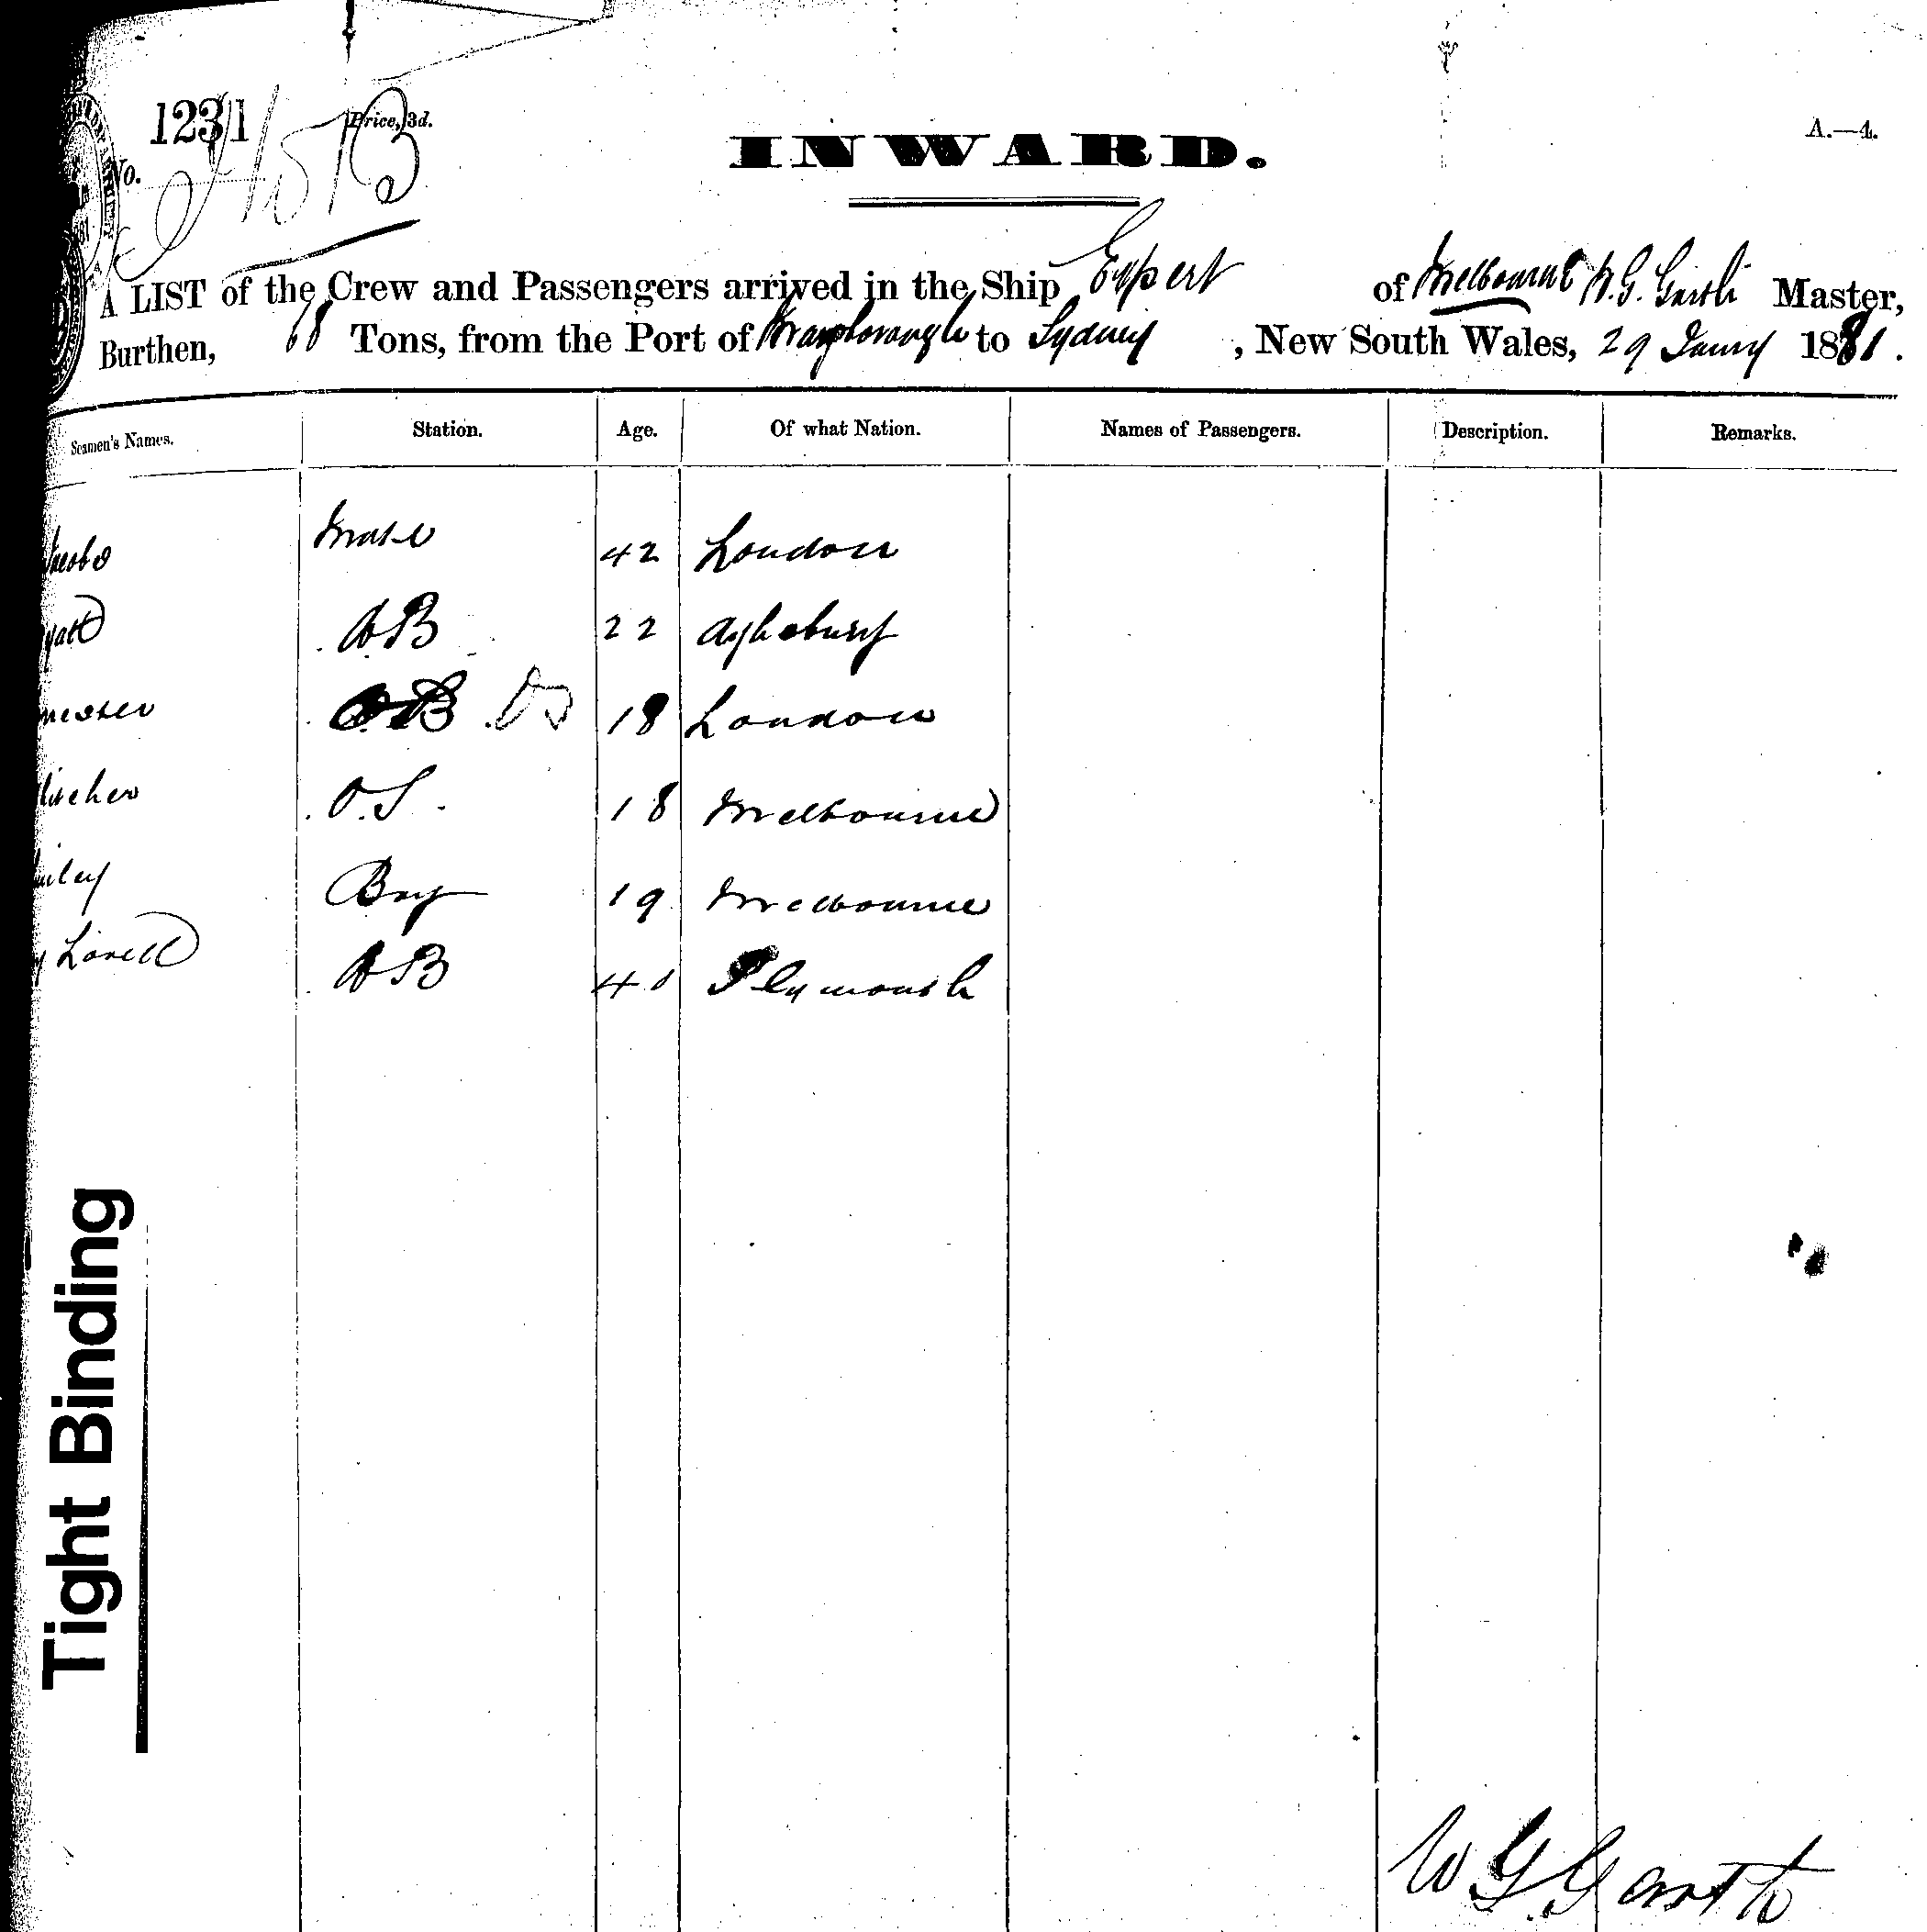 1231
Price, 3d.
A.—4.
No.
INWARD.
A LIST of the Crew and Passengers arrived in the Ship Expert of Melbourne W.G. Garth Master,
Burthen, 68 Tons, from the Port of Maryborough to Sydney, New South Wales, 29 Jany 1881.
Seamen's Names. Station. Age. Of what Nation. Names of Passengers. Description. Remarks.
Mate 42 London
AB 22 Aylesbury
OS 18 London
O.S. 18 Melbourne
Boy 19 Melbourne
Lovell AB 40 Plymouth
Tight Binding
W G Garth